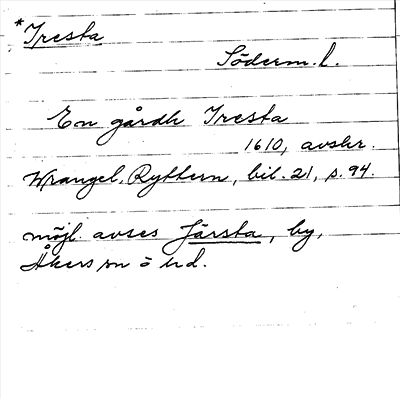 *Iresta
Söderm.l.
En gårdh Iresta
1610, avskr.
Wrangel, Ryttern, bil. 21, s. 94.
möjl. avses Järsta, by,
Åkers sn o hd.